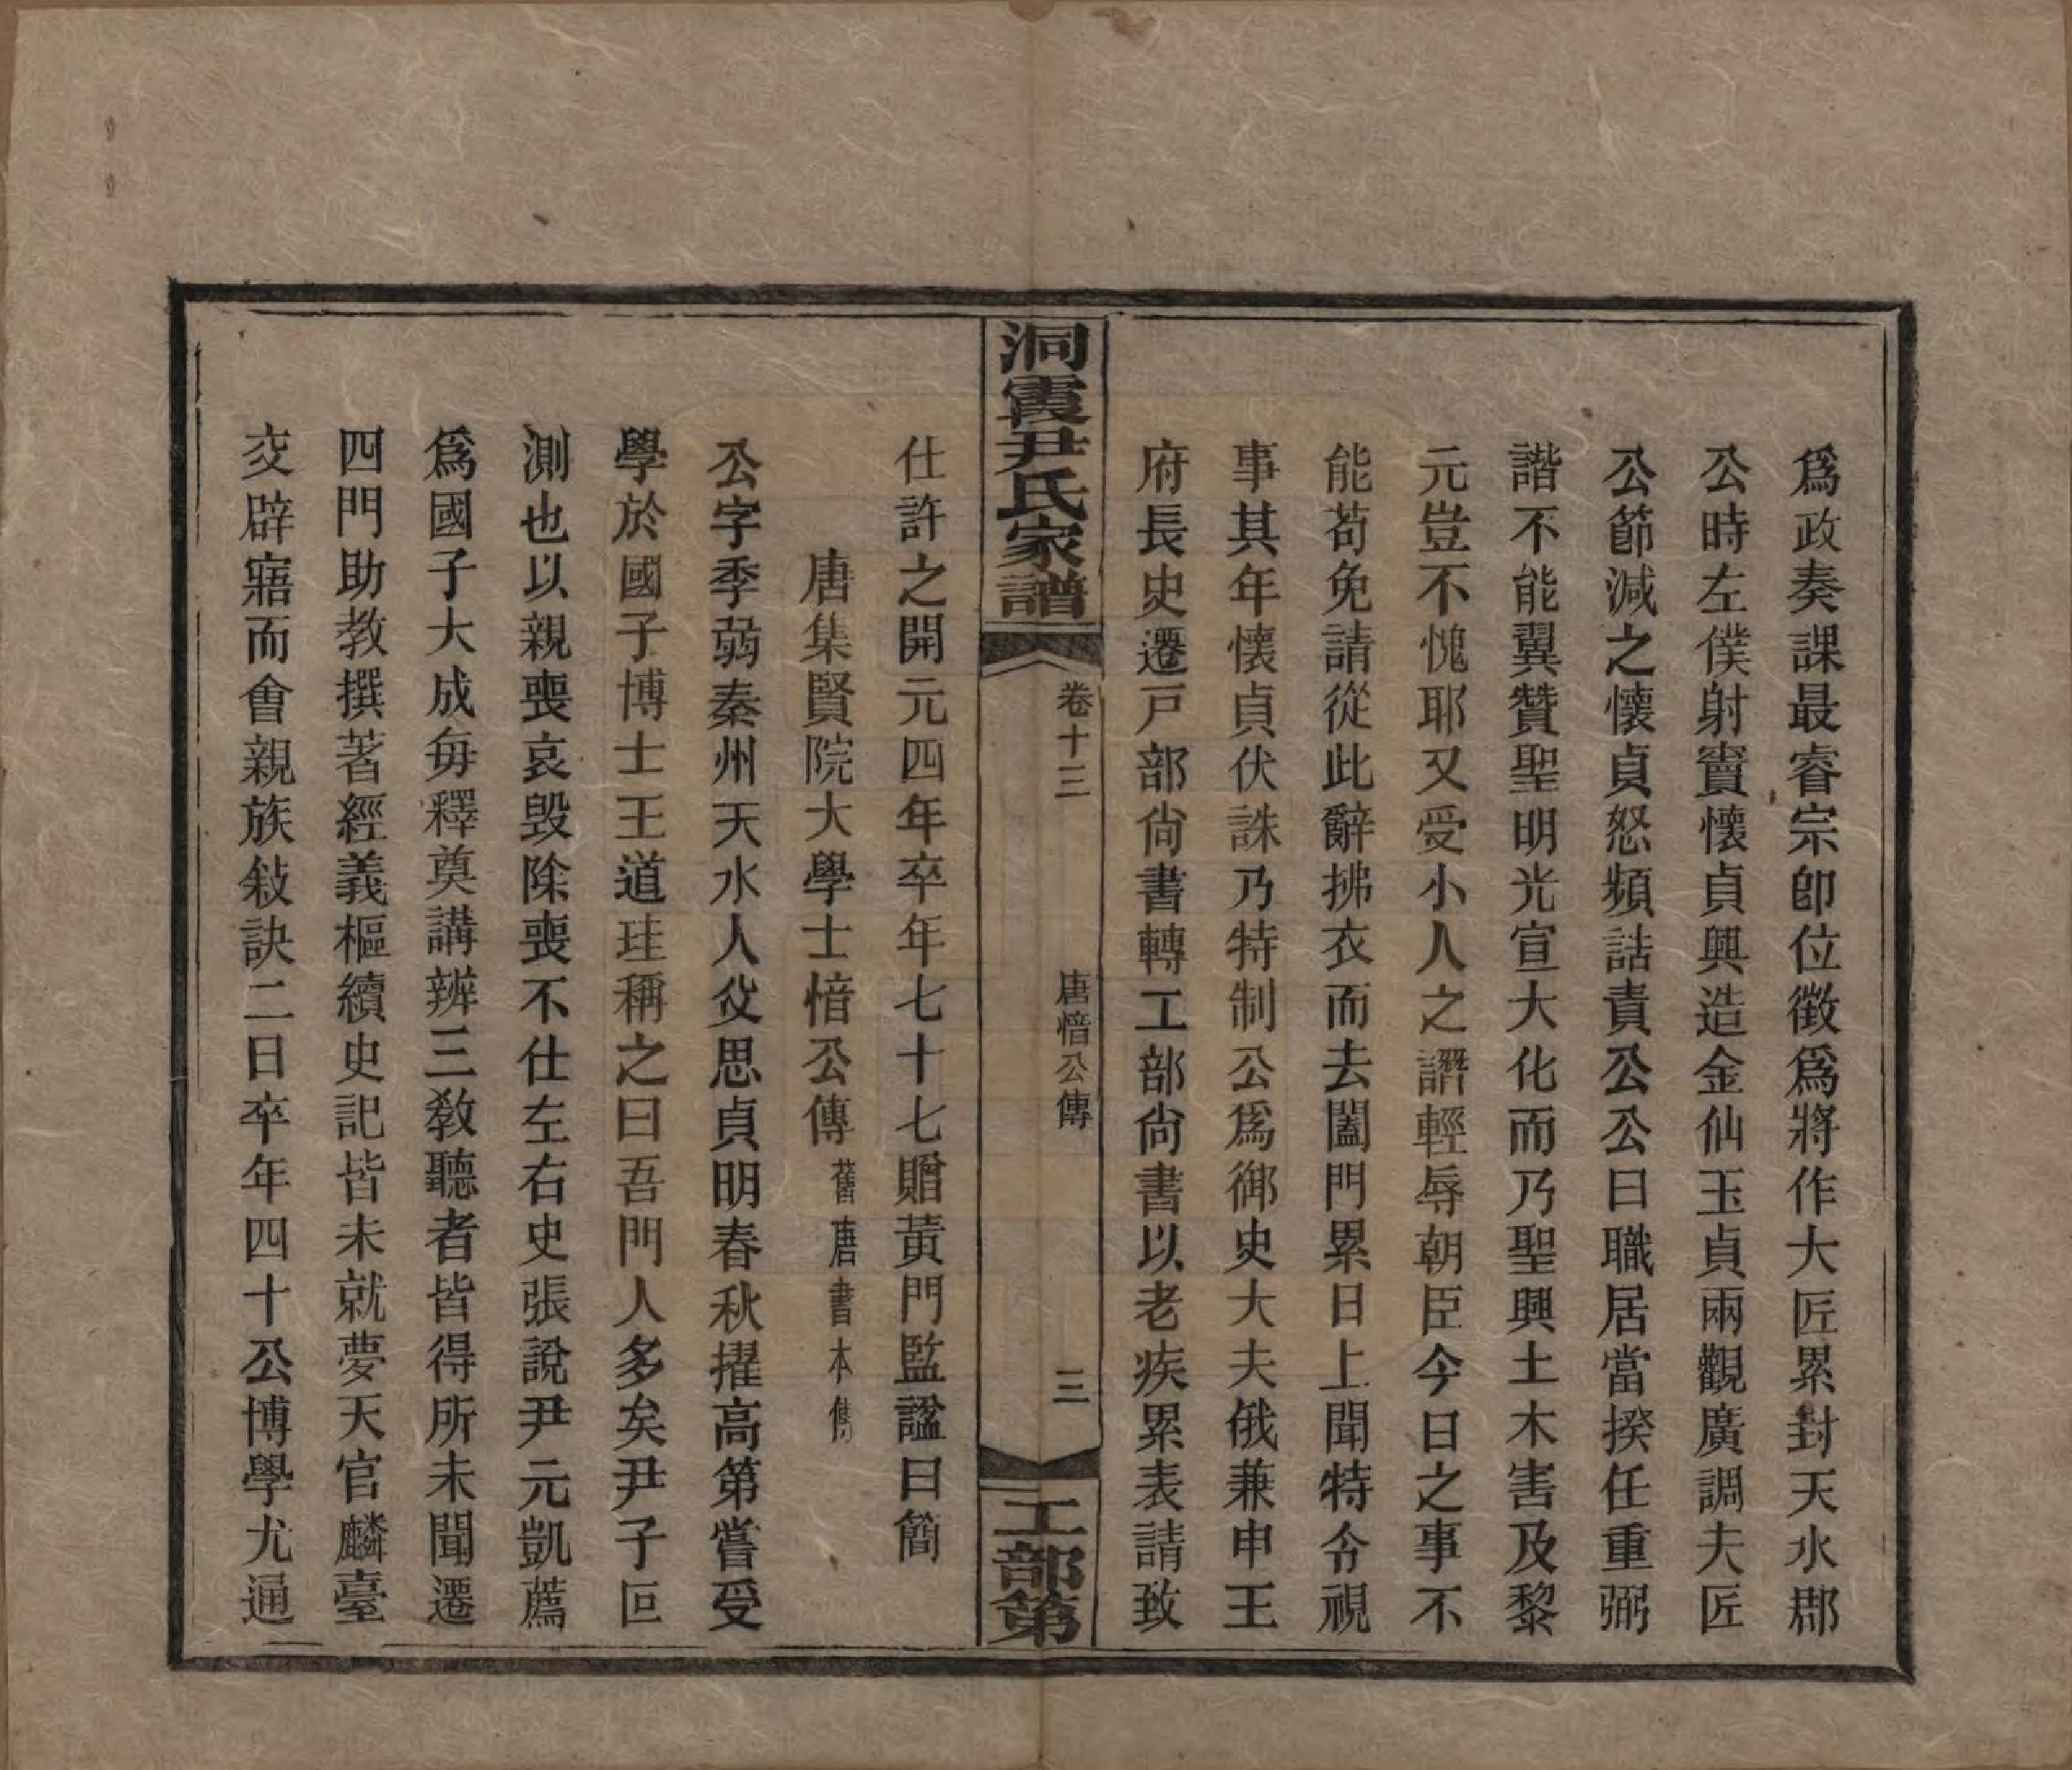 爲政奏課最睿宗卽位徵爲將作大匠累封天水郡
公時左僕射竇懷貞興造金仙玉貞兩觀廣調夫匠
公節減之懷貞怒頻詰責公公曰職居當揆任重弼
諧不能翼贊聖明光宣大化而乃聖興土木害及黎
元豈不愧耶又受小人之譖輕辱朝臣今日之事不
能苟免請從此辭拂衣而去闔門累日上聞特令視
事其年懷貞伏誅乃特制公爲御史大夫俄兼申王
府長史遷戸部尙書轉工部尙書以老疾累表請致
洞霞尹氏家譜
卷十三
唐愔公傳
三
工部第
仕許之開元四年卒年七十七贈黃門監諡曰簡
唐集賢院大學士愔公傳 舊唐書本傳
公字季弱秦州天水人父思貞明春秋擢高第嘗受
學於國子博士王道珪稱之曰吾門人多矣尹子叵
測也以親喪哀毀除喪不仕左右史張說尹元凱薦
爲國子大成每釋奠講辨三教聽者皆得所未聞遷
四門助教撰著經義樞續史記皆未就夢天官麟臺
交辟寤而會親族敍訣二日卒年四十公博學尤通